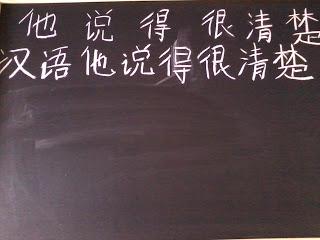 他说得很清楚
汉语他说得很清楚